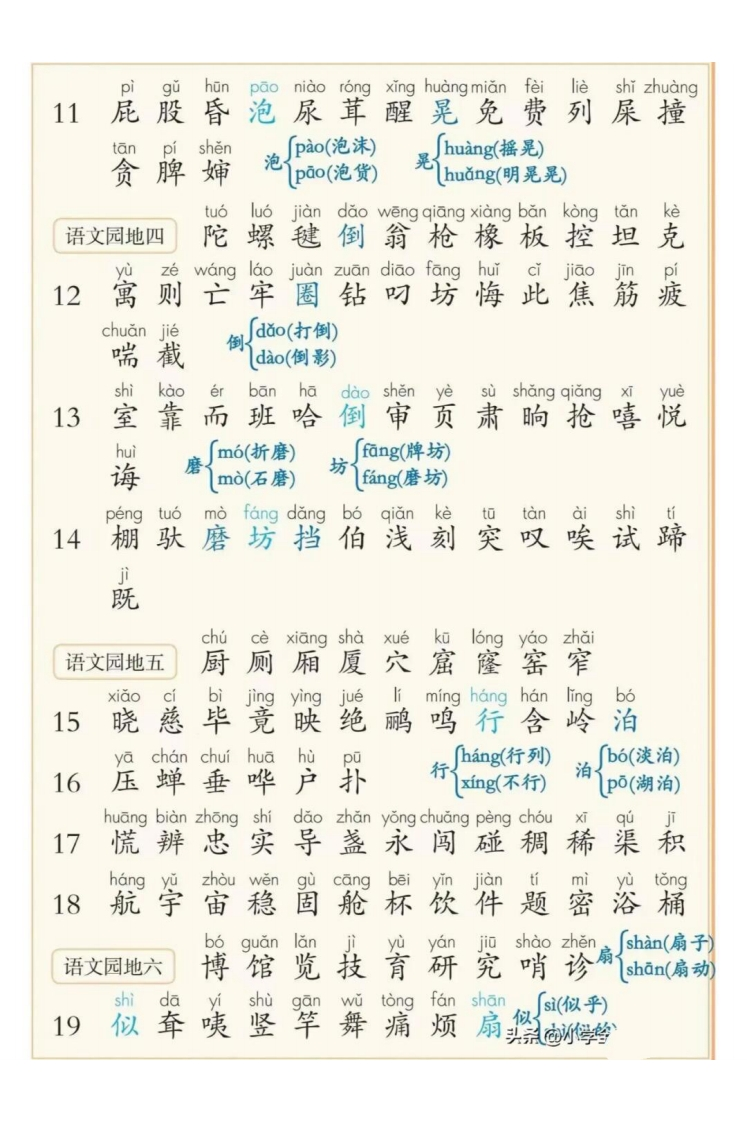 pì gǔ hūn pāo niào róng xǐng huàng miǎn fèi liè shǐ zhuàng
11 屁 股 昏 泡 尿 茸 醒 晃 免 费 列 屎 撞
tān pí shěn
贪 脾 婶 泡{pào(泡沫) pāo(泡货) 晃{huàng(摇晃) huǎng(明晃晃)
tuó luó jiàn dǎo wēng qiāng xiàng bǎn kòng tǎn kè
语文园地四 陀 螺 毽 倒 翁 枪 橡 板 控 坦 克
yù zé wáng láo juàn zuān diāo fāng huǐ cǐ jiāo jīn pí
12 寓 则 亡 牢 圈 钻 叼 坊 悔 此 焦 筋 疲
chuǎn jié
喘 截 倒{dǎo(打倒) dào(倒影)
shì kào ér bān hā dào shěn yè sù shǎng qiǎng xī yuè
13 室 靠 而 班 哈 倒 审 页 肃 晌 抢 嘻 悦
huì
诲 磨{mó(折磨) mò(石磨) 坊{fāng(牌坊) fáng(磨坊)
péng tuó mò fáng dǎng bó qiǎn kè tū tàn ài shì tí
14 棚 驮 磨 坊 挡 伯 浅 刻 突 叹 唉 试 蹄
jì
既
chú cè xiāng shà xué kū lóng yáo zhǎi
语文园地五 厨 厕 厢 厦 穴 窟 窿 窑 窄
xiǎo cí bì jìng yìng jué lí míng háng hán lǐng bó
15 晓 慈 毕 竟 映 绝 鹂 鸣 行 含 岭 泊
yā chán chuí huā hù pū
16 压 蝉 垂 哗 户 扑 行{háng(行列) xíng(不行) 泊{bó(淡泊) pō(湖泊)
huāng biàn zhōng shí dǎo zhǎn yǒng chuǎng pèng chóu xī qú jī
17 慌 辨 忠 实 导 盏 永 闯 碰 稠 稀 渠 积
háng yǔ zhòu wěn gù cāng bēi yǐn jiàn tí mì yù tǒng
18 航 宇 宙 稳 固 舱 杯 饮 件 题 密 浴 桶
bó guǎn lǎn jì yù yán jiū shào zhěn
语文园地六 博 馆 览 技 育 研 究 哨 诊 扇{shàn(扇子) shān(扇动)
shì dā yí shù gān wǔ tòng fán shān
19 似 耷 咦 竖 竿 舞 痛 烦 扇 似{sì(似乎)
头条 @小学